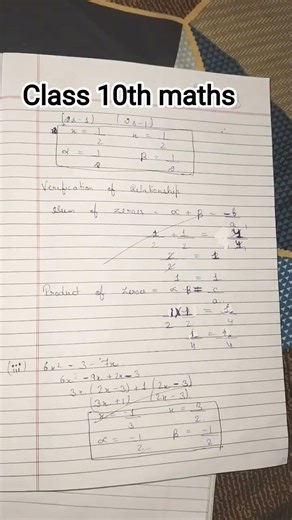 Class 10th maths
(2x-1) (2x-1)
x = 1/2 x = 1/2
α = 1/2 β = 1/2
Verification of Relationship
Sum of zeroes = α + β = -b/a
1/2 + 1/2 = 4/4
2/2 = 1
1 = 1
Product of zeros = α β = c/a
1/2 × 1/2 = 1/4
1/4 = 1/4
(iii) 6x² - 3 - 7x
6x² - 9x + 2x - 3
3x (2x - 3) + 1 (2x - 3)
(3x + 1) (2x - 3)
x = 1/3 x = 3/2
α = -1/2 β = -1/2